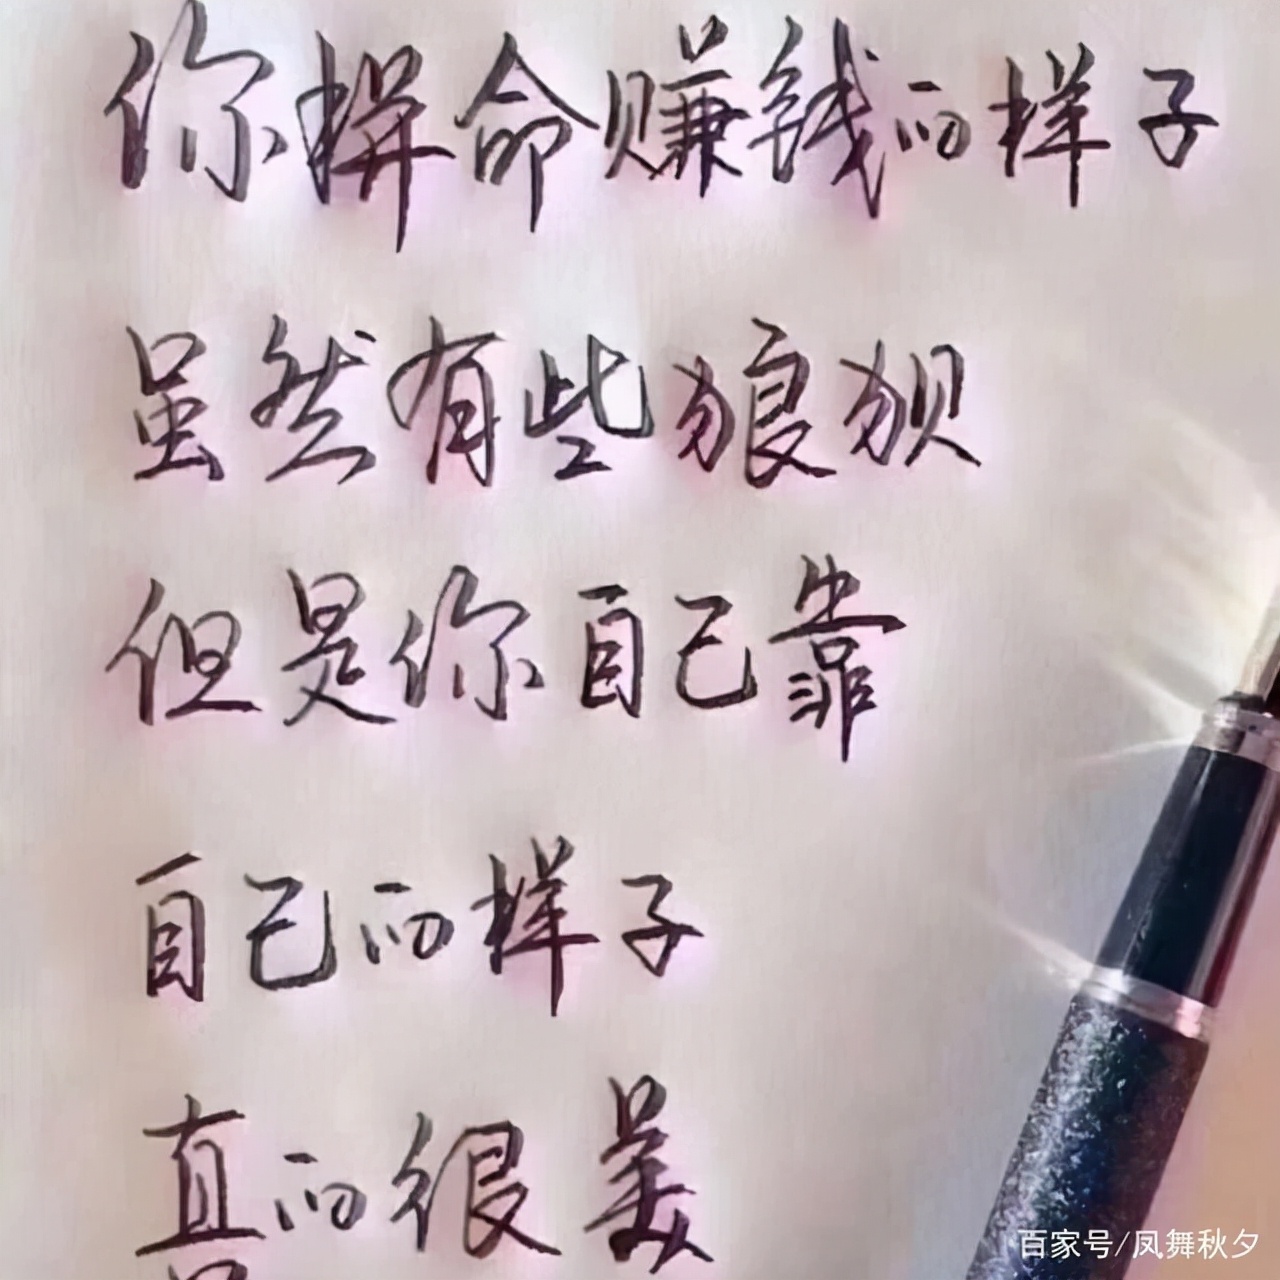 你拼命赚钱的样子
虽然有些狼狈
但是你自己靠
自己的样子
真的很美
百家号/凤舞秋夕